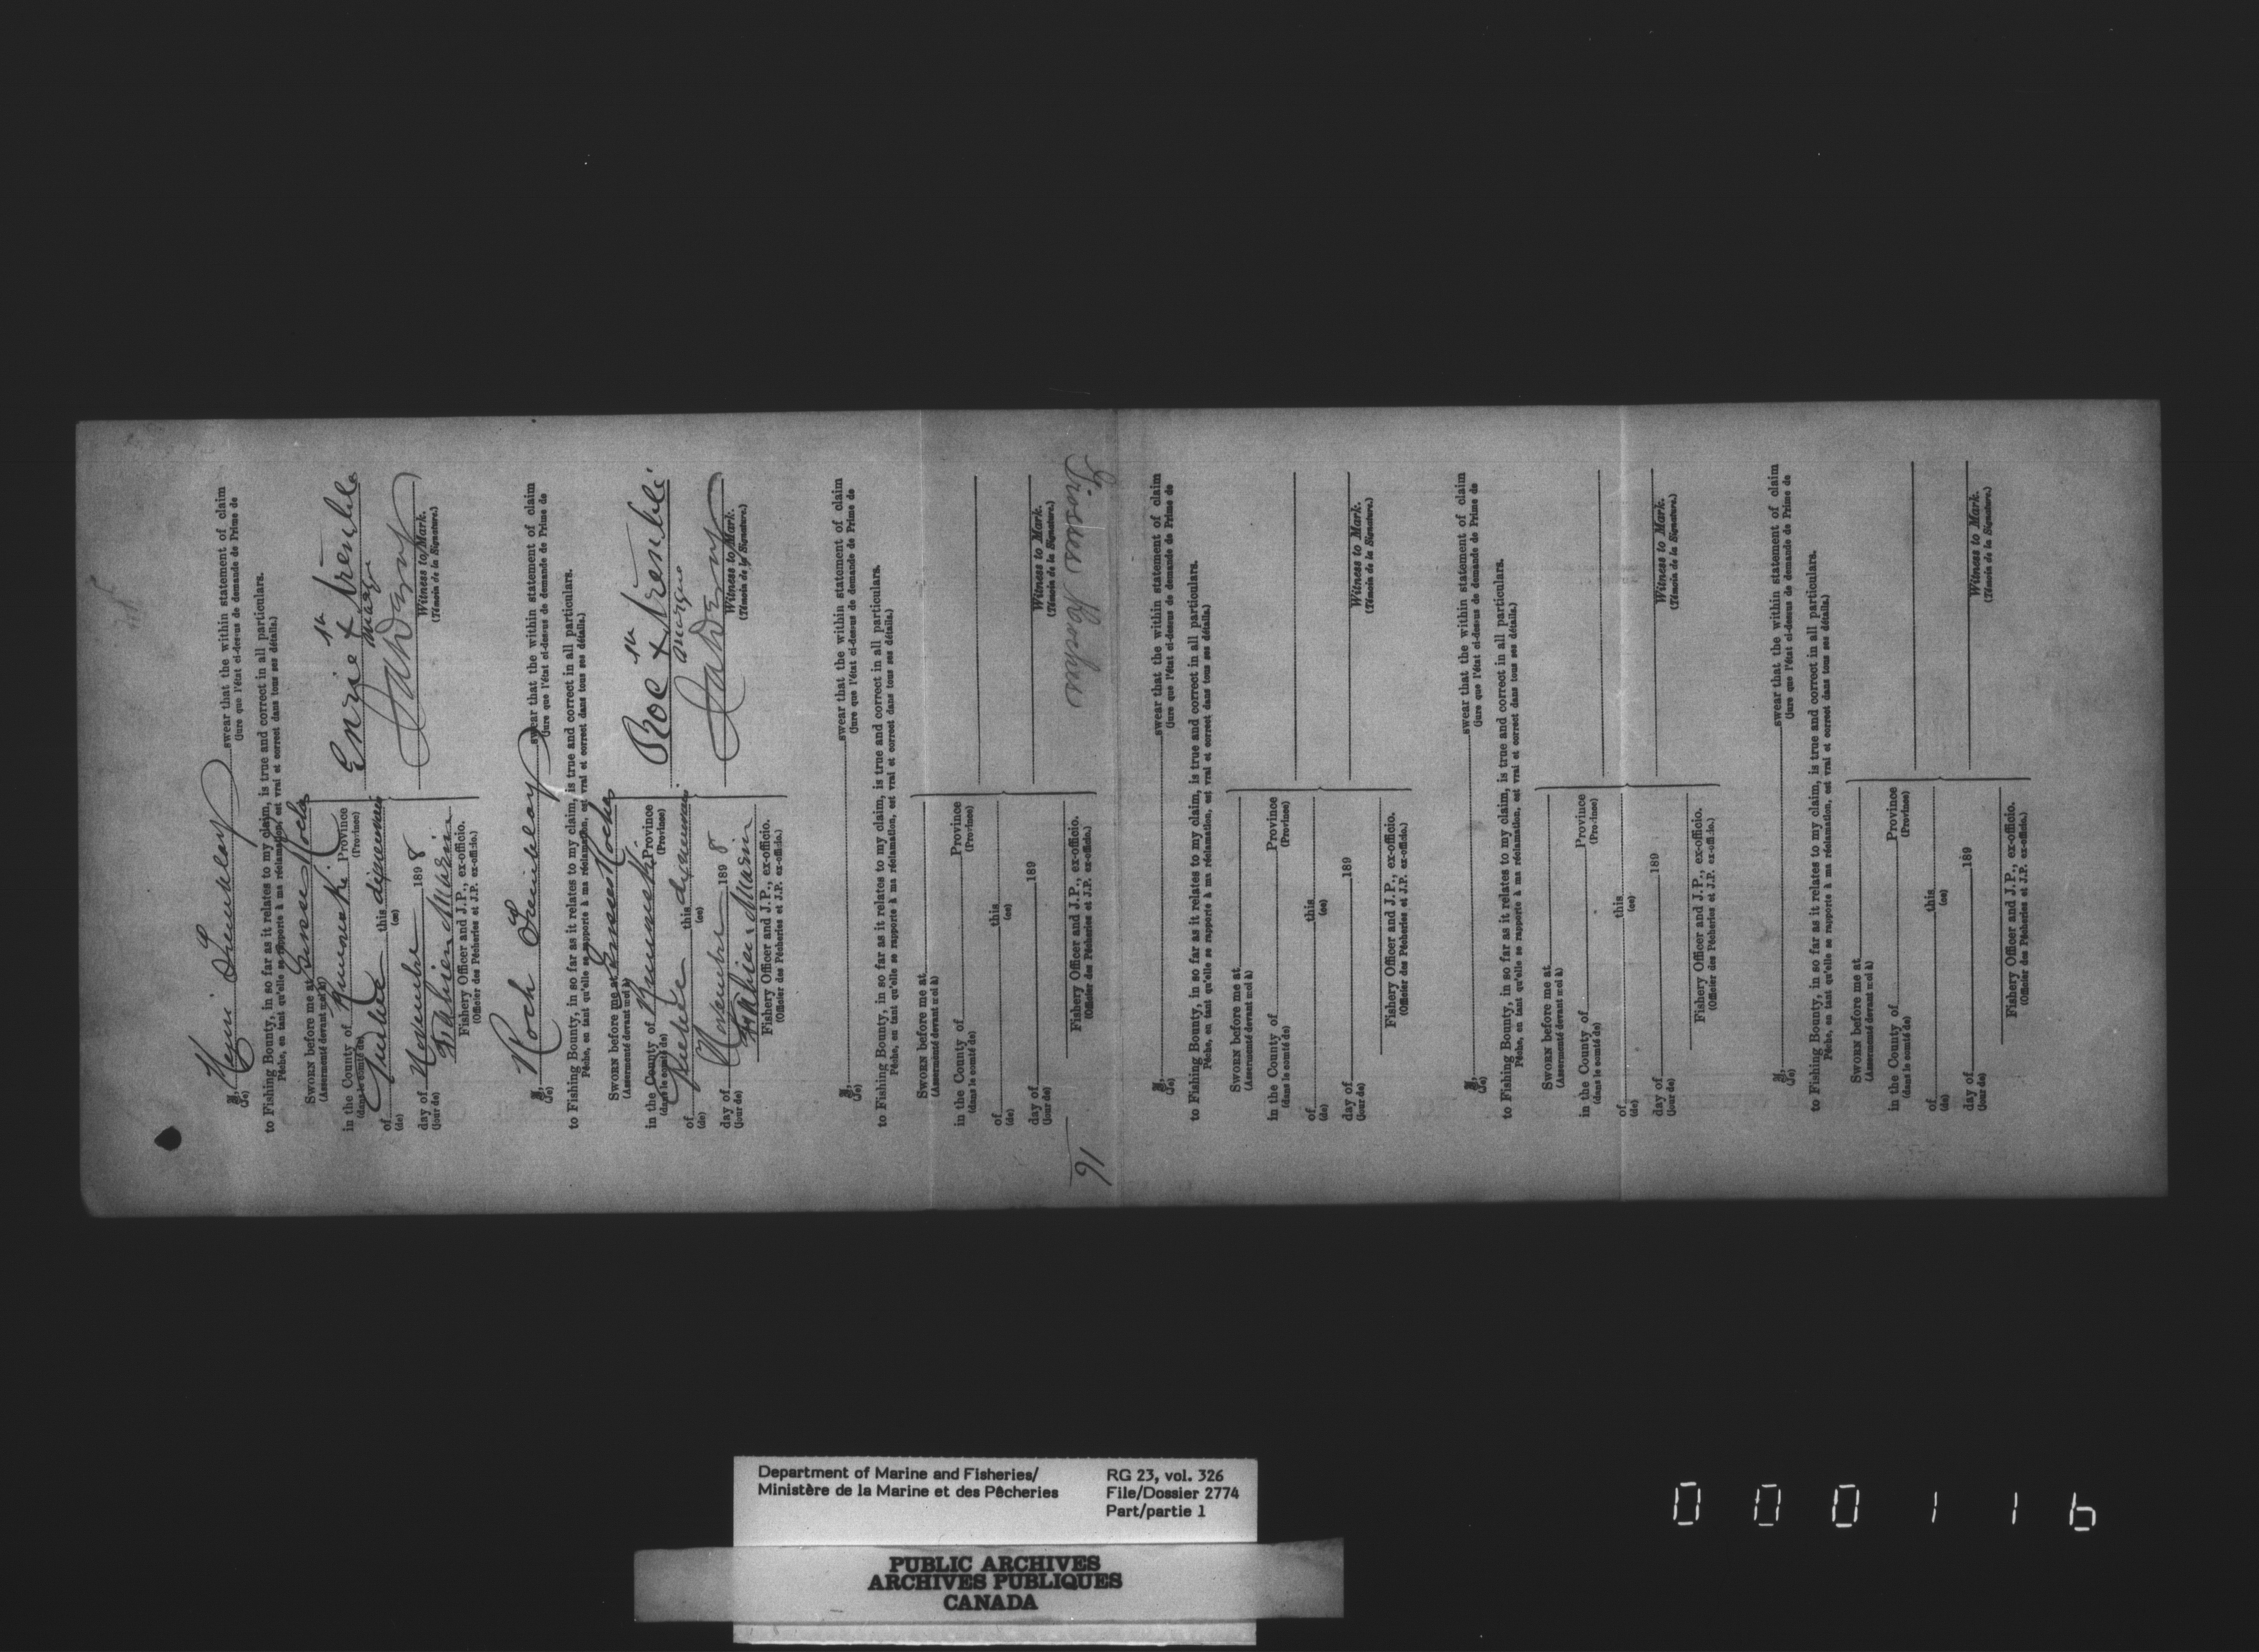 I, Henri Tremblay swear that the within statement of claim
(Je) (jure que l'état ci-dessus de demande de Prime de
to Fishing Bounty, in so far as it relates to my claim, is true and correct in all particulars.
Pêche, en tant qu'elle se rapporte à ma réclamation, est vrai et correct dans tous ses détails.)
SWORN before me at
(Assermenté devant moi à)
in the County of Rimouski Province
(dans le comté de) (Province)
of Quebec this
(de) (ce)
day of Novembre 1898
(jour de)
Fishery Officer and J.P., ex-officio.
(Officier des Pêcheries et J.P. ex-officio.)
Enrie + Trenble
Witness to Mark.
(Témoin de la Signature.)
I, Roch Tremblay swear that the within statement of claim
(Je) (jure que l'état ci-dessus de demande de Prime de
to Fishing Bounty, in so far as it relates to my claim, is true and correct in all particulars.
Pêche, en tant qu'elle se rapporte à ma réclamation, est vrai et correct dans tous ses détails.)
SWORN before me at
(Assermenté devant moi à)
in the County of Rimouski Province
(dans le comté de) (Province)
of Quebec this
(de) (ce)
day of Novembre 1898
(jour de)
Fishery Officer and J.P., ex-officio.
(Officier des Pêcheries et J.P. ex-officio.)
Roc + Trenble
marque
Witness to Mark.
(Témoin de la Signature.)
I, swear that the within statement of claim
(Je) (jure que l'état ci-dessus de demande de Prime de
to Fishing Bounty, in so far as it relates to my claim, is true and correct in all particulars.
Pêche, en tant qu'elle se rapporte à ma réclamation, est vrai et correct dans tous ses détails.)
SWORN before me at
(Assermenté devant moi à)
in the County of Province
(dans le comté de) (Province)
of this
(de) (ce)
day of 189
(jour de)
Fishery Officer and J.P., ex-officio.
(Officier des Pêcheries et J.P. ex-officio.)
Witness to Mark.
(Témoin de la Signature.)
16
I, swear that the within statement of claim
(Je) (jure que l'état ci-dessus de demande de Prime de
to Fishing Bounty, in so far as it relates to my claim, is true and correct in all particulars.
Pêche, en tant qu'elle se rapporte à ma réclamation, est vrai et correct dans tous ses détails.)
SWORN before me at
(Assermenté devant moi à)
in the County of Province
(dans le comté de) (Province)
of this
(de) (ce)
day of 189
(jour de)
Fishery Officer and J.P., ex-officio.
(Officier des Pêcheries et J.P. ex-officio.)
Witness to Mark.
(Témoin de la Signature.)
I, swear that the within statement of claim
(Je) (jure que l'état ci-dessus de demande de Prime de
to Fishing Bounty, in so far as it relates to my claim, is true and correct in all particulars.
Pêche, en tant qu'elle se rapporte à ma réclamation, est vrai et correct dans tous ses détails.)
SWORN before me at
(Assermenté devant moi à)
in the County of Province
(dans le comté de) (Province)
of this
(de) (ce)
day of 189
(jour de)
Fishery Officer and J.P., ex-officio.
(Officier des Pêcheries et J.P. ex-officio.)
Witness to Mark.
(Témoin de la Signature.)
I, swear that the within statement of claim
(Je) (jure que l'état ci-dessus de demande de Prime de
to Fishing Bounty, in so far as it relates to my claim, is true and correct in all particulars.
Pêche, en tant qu'elle se rapporte à ma réclamation, est vrai et correct dans tous ses détails.)
SWORN before me at
(Assermenté devant moi à)
in the County of Province
(dans le comté de) (Province)
of this
(de) (ce)
day of 189
(jour de)
Fishery Officer and J.P., ex-officio.
(Officier des Pêcheries et J.P. ex-officio.)
Witness to Mark.
(Témoin de la Signature.)
Department of Marine and Fisheries/ RG 23, vol. 326
Ministère de la Marine et des Pêcheries File/Dossier 2774
Part/partie 1
PUBLIC ARCHIVES
ARCHIVES PUBLIQUES
CANADA
000116